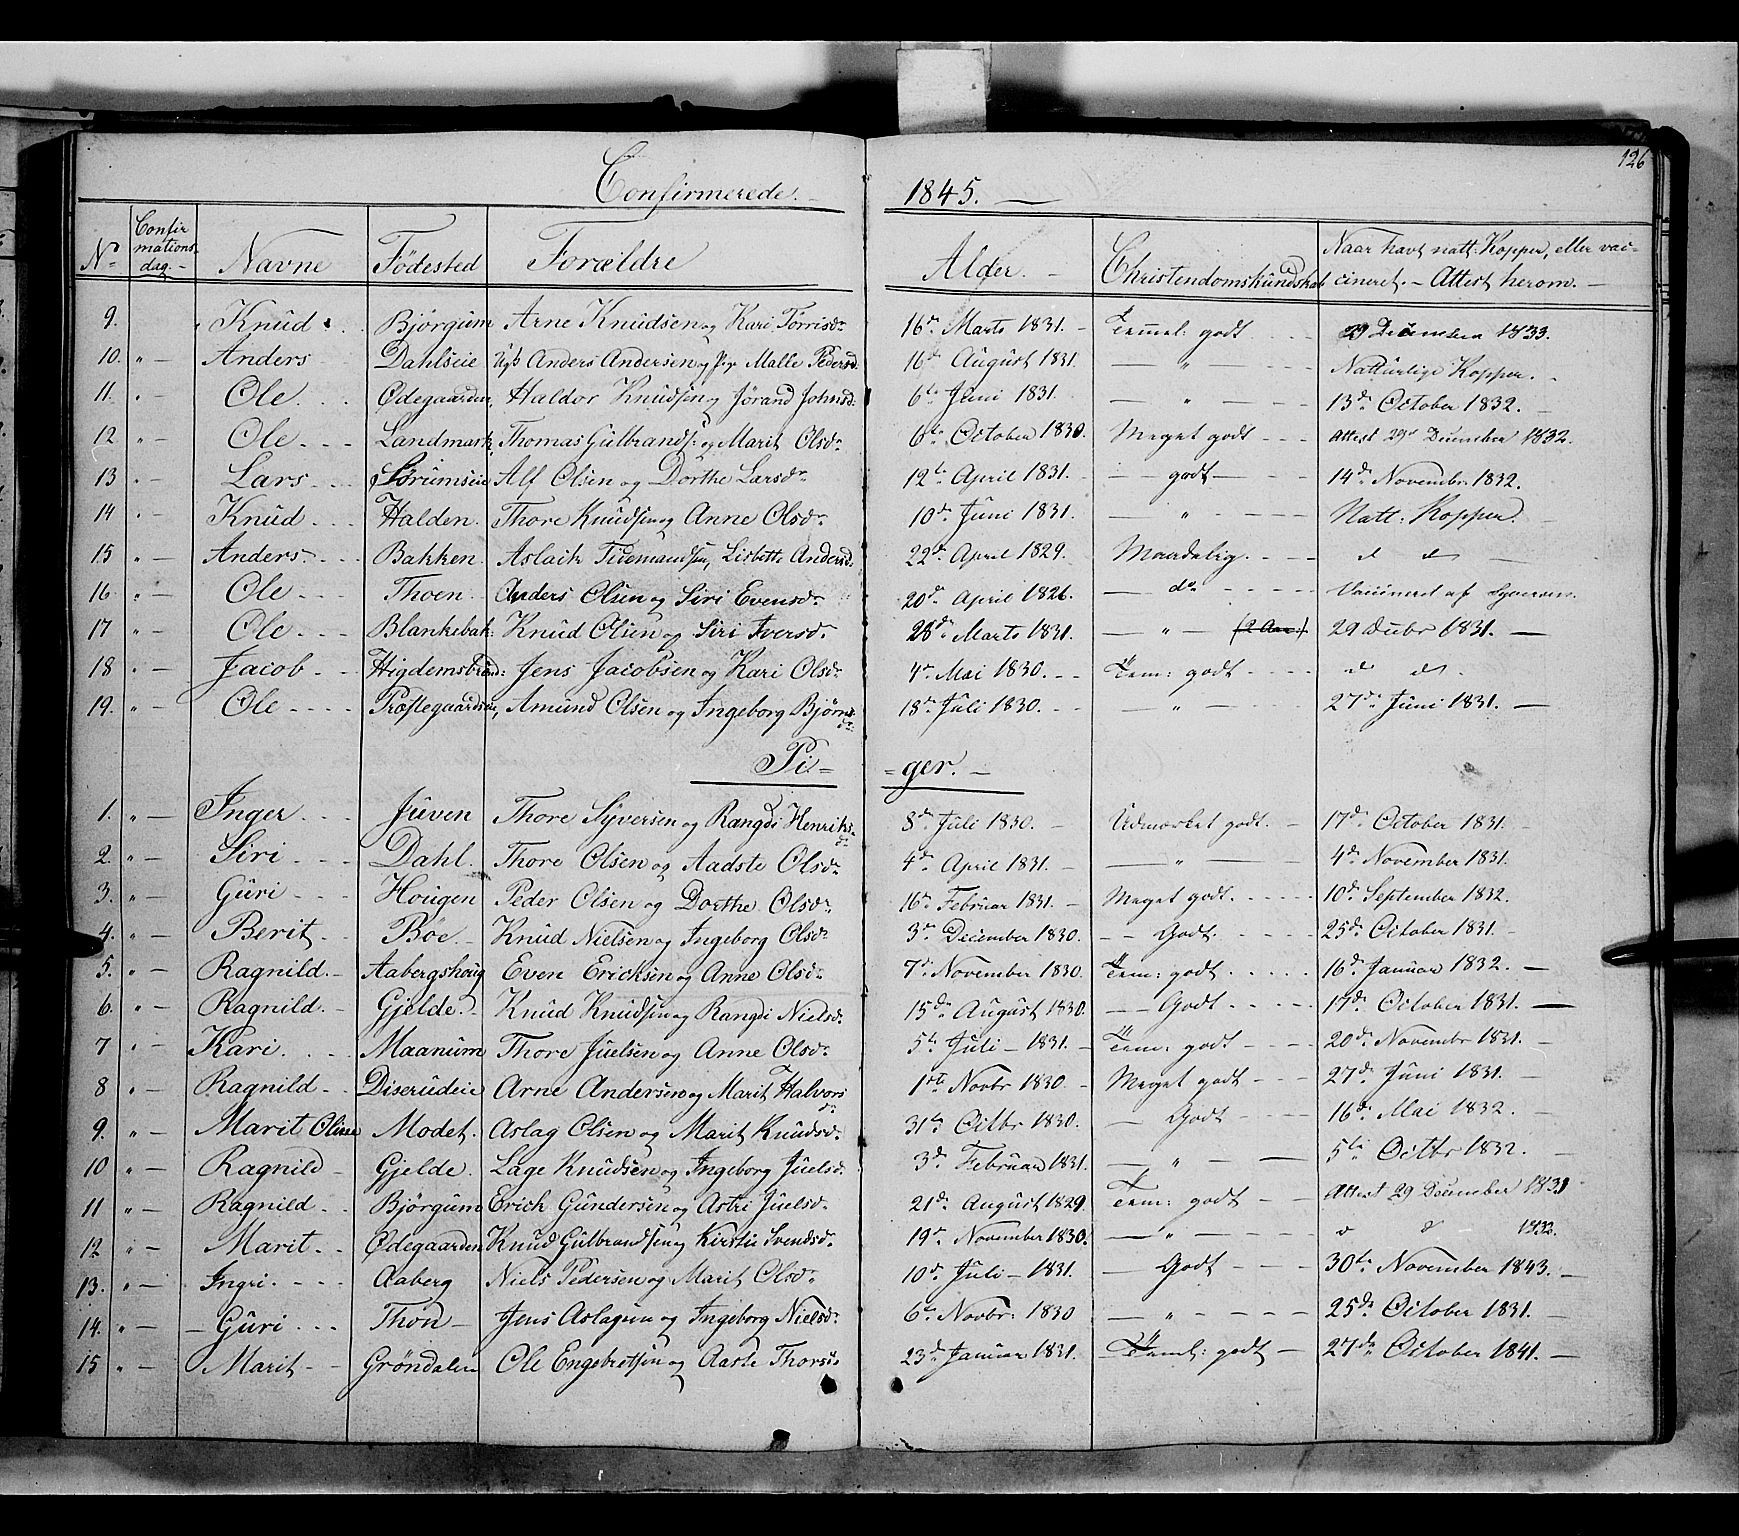 126
Confirmerede. 1845.
No Confirmationsdag. Navne Fødested Forældre Alder. Christendomskundskab Naar havt natt: Kopper, eller vaccineret. Attest herom.
9. Knud Bjørgum Arne Knudsen og Kari Torrisdr 16de Marts 1831. Temmel: godt 29 December 1833.
10. " Anders Dahlseie Anders Andersen og Malle Pedersd. 16de August 1831. " Naturlige Kopper.
11. " Ole Ødegaarden, Haldor Knudsen og Jørand Johnsd. 6te Juni 1831. " 13de October 1832.
12 " Ole Landmark, Thomas Gulbrands: og Marit Olsdr 6te October 1830. Meget godt Attest 29de December 1832.
13 " Lars Sørumseie Alf Olsen og Dorthe Larsdr 12te April 1831. godt 14de Novembr 1832.
14 " Knud Halden. Thore Knudsen og Anne Olsdr 10de Juni 1831. " Natt: Kopper.
15 " Anders Bakken. Aslack Tidemandsen, Lisbette Andersd. 22de April 1829. Maadelig. d d
16 " Ole Thoen Anders Olsen og Siri Evensdr 20de April 1826. do Vaccineret af
17 " Ole Blankebak: Knud Olsen og Siri Iversdr 28de Marts 1831. " 29 Decbr 1831.
18 " Jacob Higdemsbraad: Jens Jacobsen og Kari Olsdr 4de Mai 1830. Tem: godt d d
19. " Ole Præstegaardseie, Amund Olsen og Ingeborg Bjørnsdr 18de Juli 1830. " 27de Juni 1831.
Pi= =ger.
1. " Inger Juven Thore Syversen og Rangdi Henriksdr 8de Juli 1830. Udmærket godt. 17de October 1831.
2. " Siri Dahl. Thore Olsen og Aadste Olsdr 4de April 1831. " 4de November 1831.
3. " Guri Hougen Peder Olsen og Dorthe Olsdr 16de Februar 1831. Meget godt. 10de September 1832.
4. " Berit Bøe. Knud Nielsen og Ingeborg Olsdr 3die December 1830. Godt. 25de October 1831.
5. " Ragnild. Aabergshoug Even Ericksen og Anne Olsdr 7de November 1830. Tem: godt 16de Januar 1832.
6. " Ragnild. Gjelde. Knud Knudsen og Rangdi Nielsd. 15de August 1830. Godt 17de October 1831.
7 " Kari. Maanum Thore Juelsen og Anne Olsdr 5te Juli 1831. Tem: godt 20de Novembr 1831.
8 " Ragnild Diserudeie Arne Andersen og Marit Halvorsdr 1ste Novbr 1830. Meget godt 27de Juni 1831.
9. " Marit Oline Modet. Aslag Olsen og Marit Knudsdr 31te Octbr 1830. Godt 16de Mai 1832.
10 " Ragnild Gjelde. Lage Knudsen og Ingeborg Juelsd. 3de Februar 1831. " 5te Octbr 1832.
11 " Ragnild Bjørgum Erick Gundersen og Astri Juelsdr 21de August 1829. Tem: godt Attest 29 December 1831
12 " Marit Ødegaarden Knud Gulbrandsen og Kirstie Svendsdr 19de November 1830. " d d 1832.
13. " Ingri. Aaberg Niels Pedersen og Marit Olsdr 10de Juli 1831. Godt 30te November 1843.
14. " Guri Thon Jens Aslagsen og Ingeborg Nielsdr 6te Novbr: 1830 " 25de October 1831.
15 " Marit Grøndalen Ole Engebretsen og Aaste Thorsdr 23de Januar 1831. Teml: godt 27de October 1841.